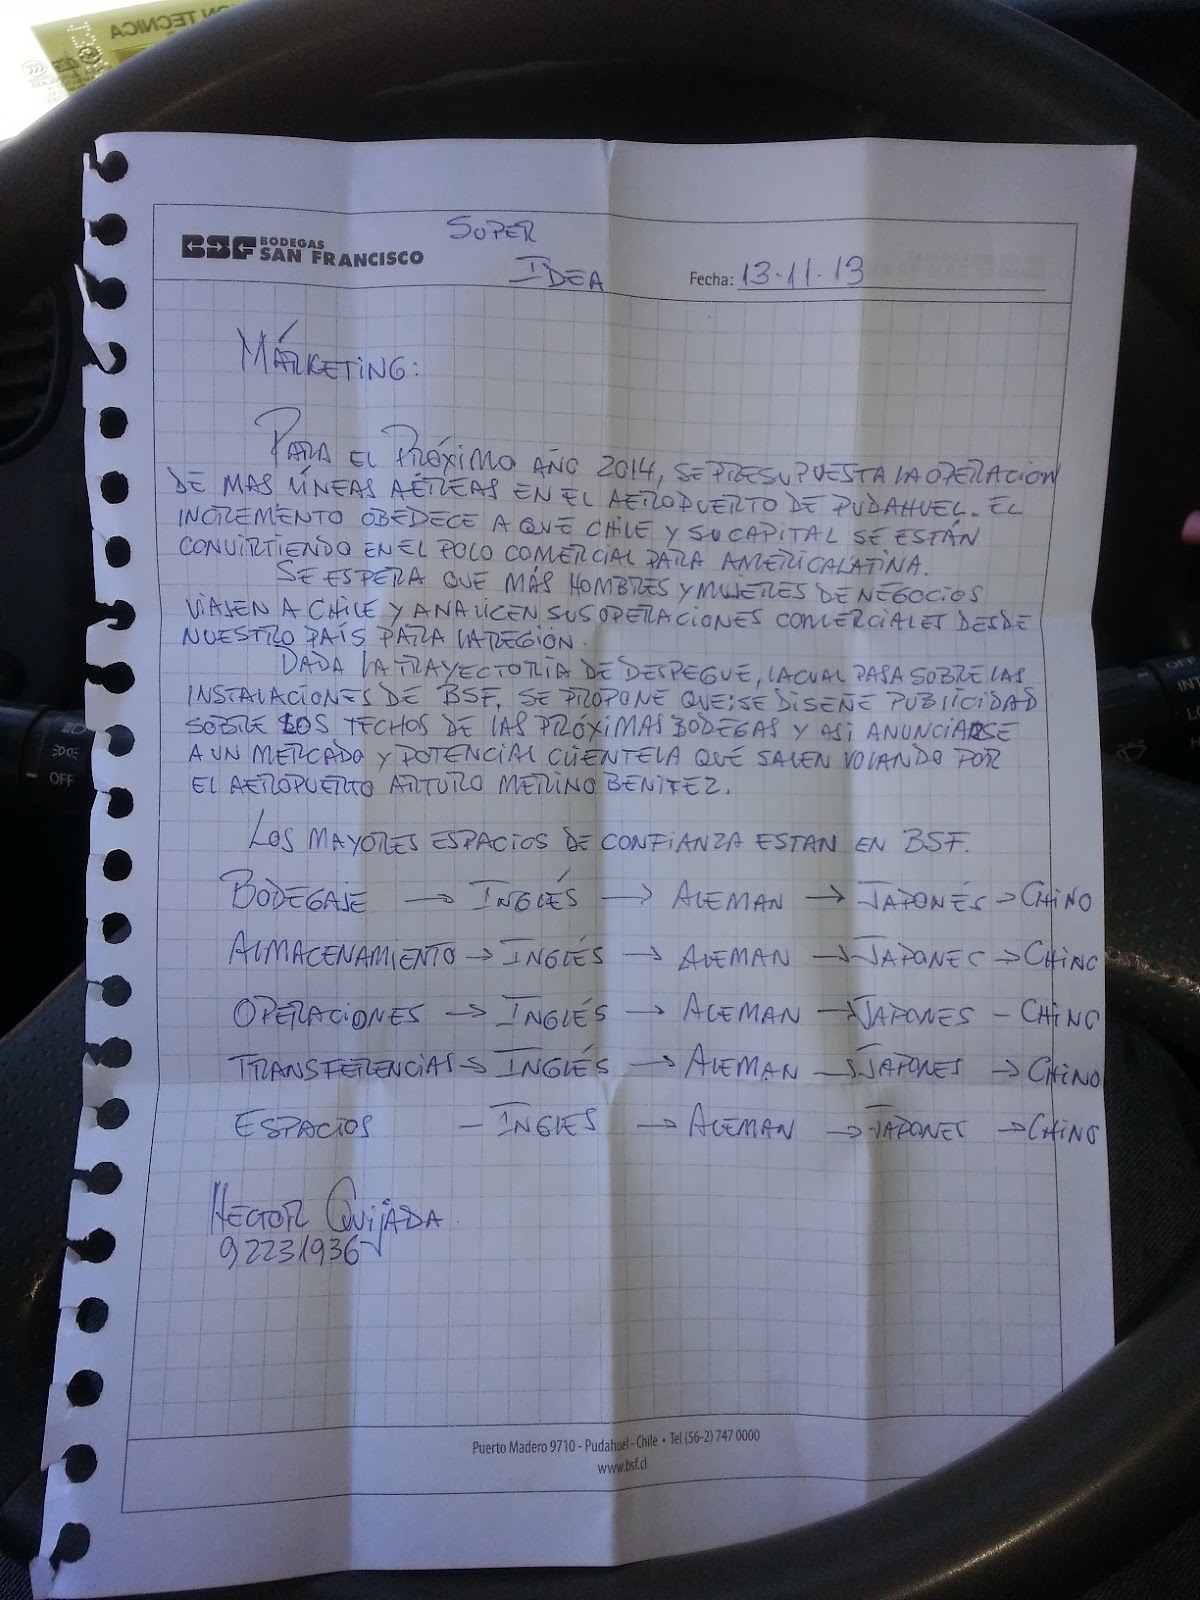 ON TECNICA
BSF BODEGAS
SAN FRANCISCO
SUPER
IDEA
Fecha: 13-11-13
MÁRKETING:
PARA EL PRÓXIMO AÑO 2014, SE PRESUPUESTA LA OPERACION
DE MAS LÍNEAS AÉREAS EN EL AEROPUERTO DE PUDAHUEL. EL
INCREMENTO OBEDECE A QUE CHILE Y SU CAPITAL SE ESTÁN
CONVIRTIENDO EN EL POLO COMERCIAL PARA AMERICALATINA.
SE ESPERA QUE MÁS HOMBRES Y MUJERES DE NEGOCIOS
VIAJEN A CHILE Y ANALICEN SUS OPERACIONES COMERCIALES DESDE
NUESTRO PAÍS PARA LA REGIÓN.
DADA LA TRAYECTORIA DE DESPEGUE, LA CUAL PASA SOBRE LAS
INSTALACIONES DE BSF, SE PROPONE QUE; SE DISEÑE PUBLICIDAD
SOBRE LOS TECHOS DE LAS PRÓXIMAS BODEGAS Y ASI ANUNCIARSE
A UN MERCADO Y POTENCIAL CLIENTELA QUÉ SALEN VOLANDO POR
EL AEROPUERTO ARTURO MERINO BENITEZ.
LOS MAYORES ESPACIOS DE CONFIANZA ESTAN EN BSF.
BODEGAJE → INGLÉS → ALEMAN → JAPONÉS → CHINO
ALMACENAMIENTO → INGLÉS → ALEMAN → JAPONES → CHINO
OPERACIONES → INGLÉS → ALEMAN → JAPONES - CHINO
TRANSFERENCIAS → INGLÉS → ALEMAN → JAPONES → CHINO
ESPACIOS - INGLES → ALEMAN → JAPONES → CHINO
HECTOR QUIJADA
92231936
Puerto Madero 9710 - Pudahuel - Chile • Tel (56-2) 747 0000
www.bsf.cl
OFF
OFF
INT